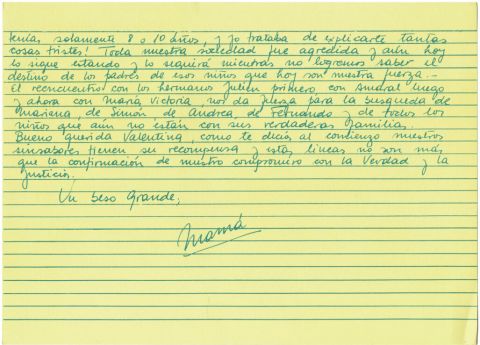 tenías solamente 8 o 10 años, y yo trataba de explicarte tantas
cosas tristes! Toda nuestra sociedad fue agredida y aún hoy
lo sigue estando y lo seguirá mientras no logremos saber el
destino de los padres de esos niños que hoy son nuestra fuerza.-
El reencuentro con los hermanos Julien primero, con Amaral luego
y ahora con María Victoria, nos da fuerza para la búsqueda de
Mariana, de Simón de Andrea, de Fernando y de todos los
niños que aún no están con sus verdaderas familias.
Bueno querida Valentina, como te decía al comienzo nuestros
sinsabores tienen su recompensa y estas líneas no son más
que la confirmación de nuestro compromiso con la Verdad y la
Justicia.
Un beso Grande,
Mamá